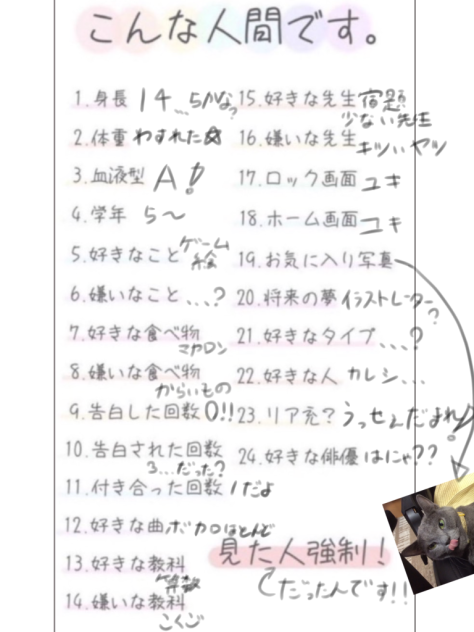 こんな人間です。
1.身長 14…5かな?
2.体重 わすれた☆
3.血液型 A!
4.学年 5〜
5.好きなこと ゲーム
絵
6.嫌いなこと …?
7.好きな食べ物
マカロン
8.嫌いな食べ物
からいもの
9.告白した回数 0!!
10.告白された回数
3…だった?
11.付き合った回数 1だよ
12.好きな曲 ボカロほとんど
13.好きな教科
算数
14.嫌いな教科
こくご
15.好きな先生 宿題
少ない先生
16.嫌いな先生
キツいヤツ
17.ロック画面 ユキ
18.ホーム画面 ユキ
19.お気に入り写真
20.将来の夢 イラストレーター
?
21.好きなタイプ …?
22.好きな人 カレシ…
23.リア充? うっせぇだよれ!
24.好きな俳優 はにゃ??
見た人強制!
だったんです!!